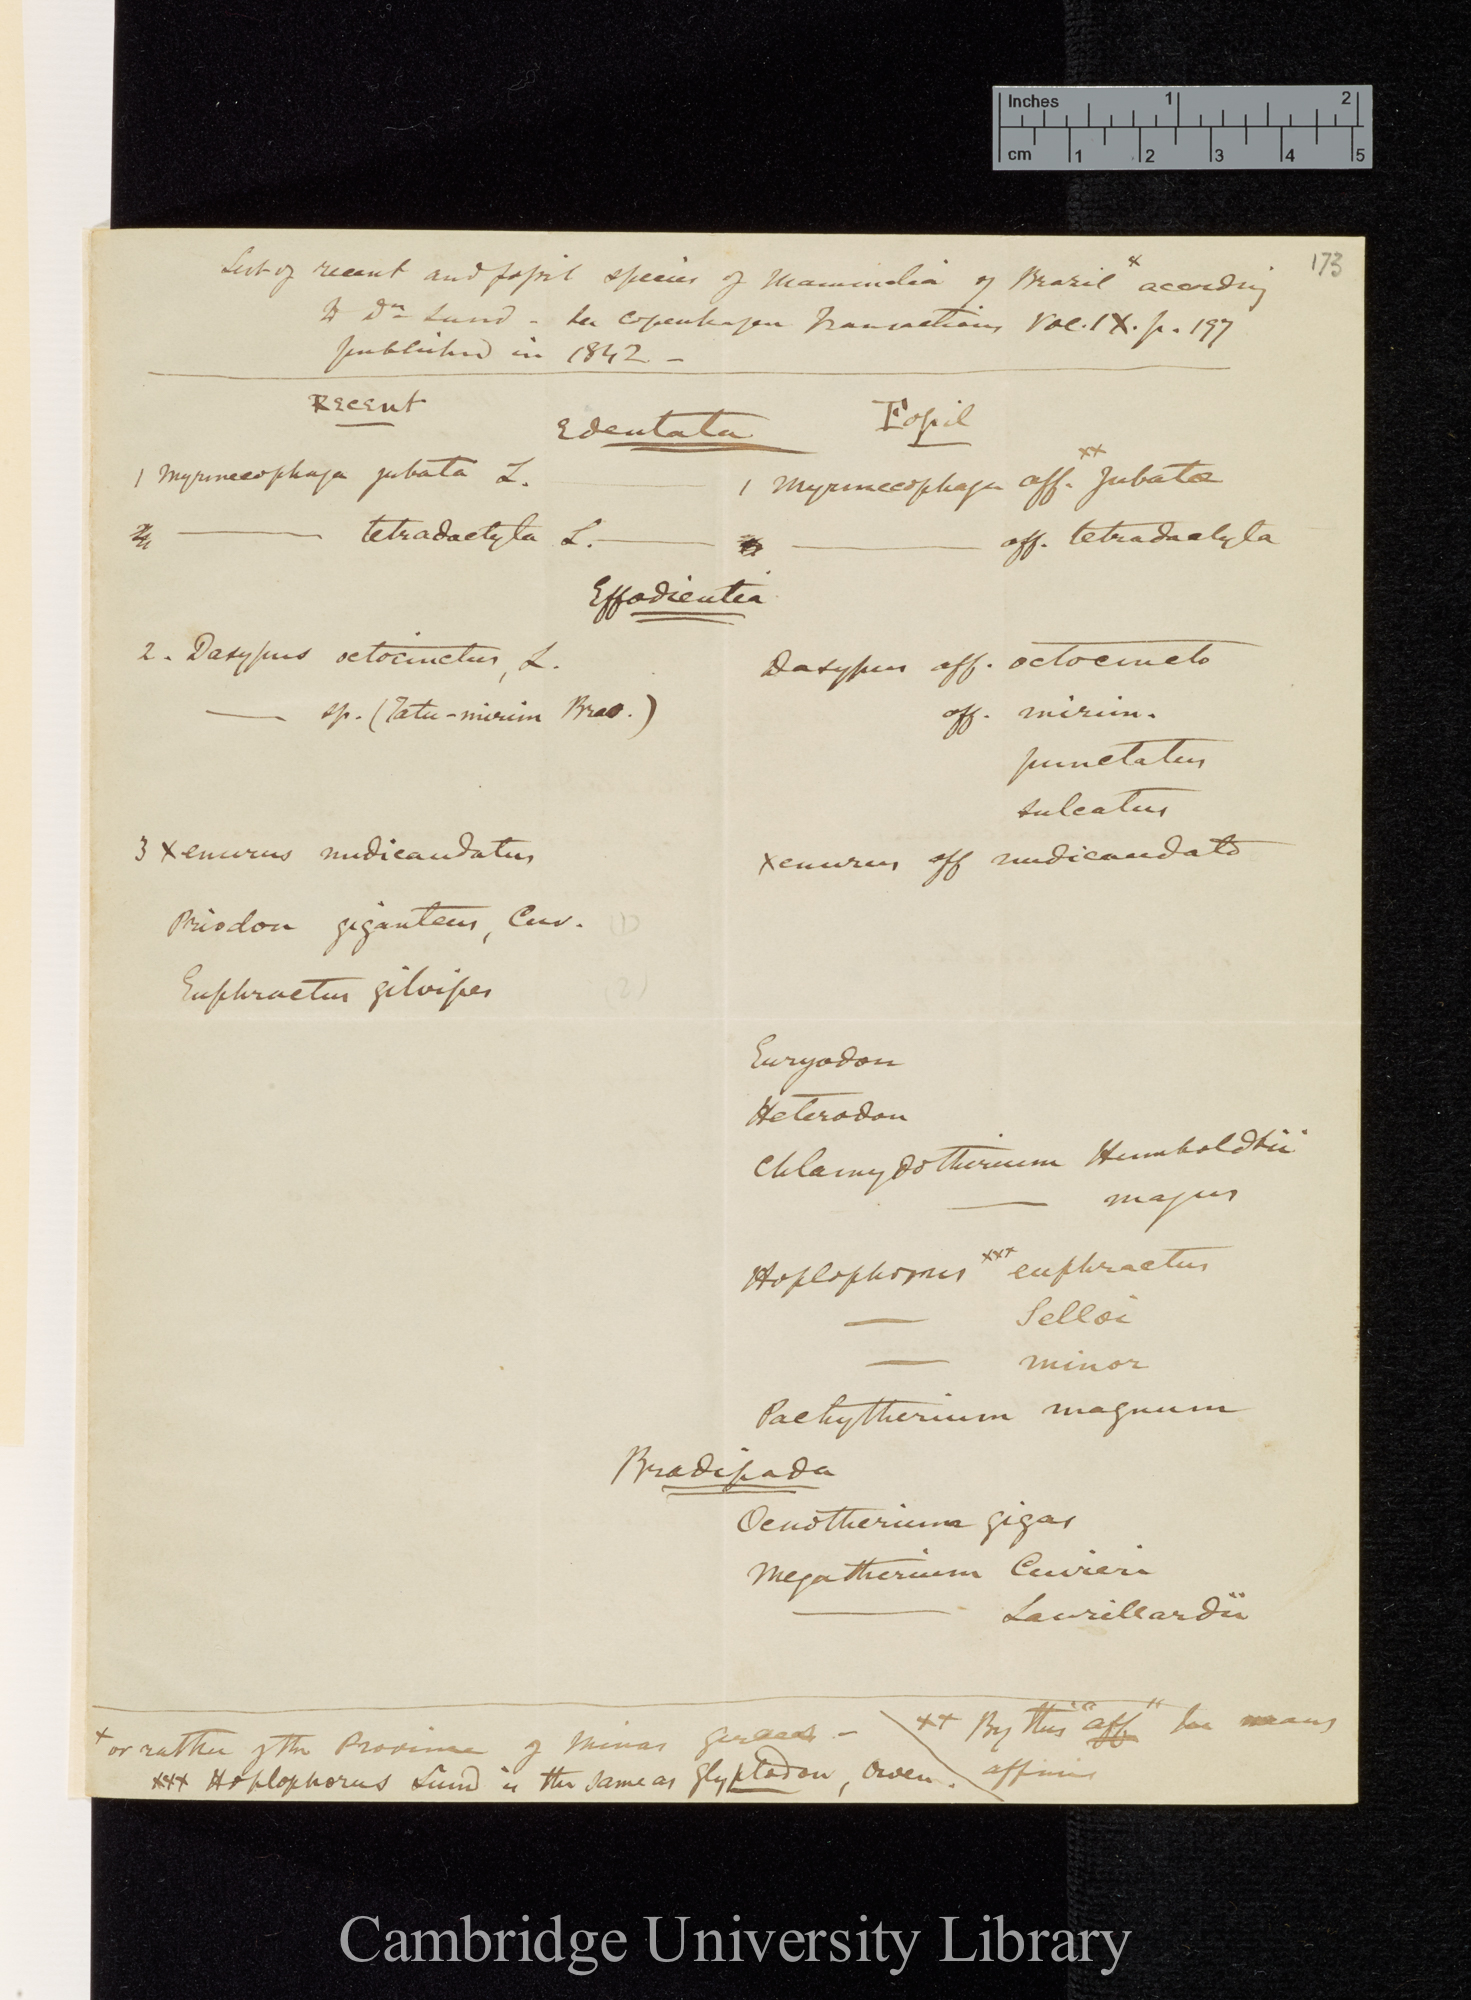 Inches 1 2
cm 1 2 3 4 5
173
List of recent and fossil species of Mammalia of Brazil x according
to Dr Lund - See Copenhagen Transactions Vol. IX. p. 197
published in 1842 -
Recent
Fossil
Edentata
1 Myrmecophaga jubata L. 1 Myrmecophaga aff. xx Jubatae
tetradactyla L. aff. tetradactyla
Effodientia
2. Dasypus octocinctus, L. Dasypus aff. octocincto
sp. (Tatu-mirim Bras.) aff. mirim.
punctatus
sulcatus
3 Xenurus nudicaudatus Xenurus aff nudicaudato
Priodon giganteus, Cuv.
Euphractus gilvipes
Euryodon
Heterodon
Chlamydotherium Humboldtii
majus
Hoplophorus xxx euphractus
Selloi
minor
Pachytherium magnum
Bradipoda
Ocnotherium gigas
Megatherium Cuvieri
Laurillardii
x or rather of the Province of Minas geraes - xx By this "aff" he means
affinis
xxx Hoplophorus Lund is the same as glyptodon, Owen.
Cambridge University Library